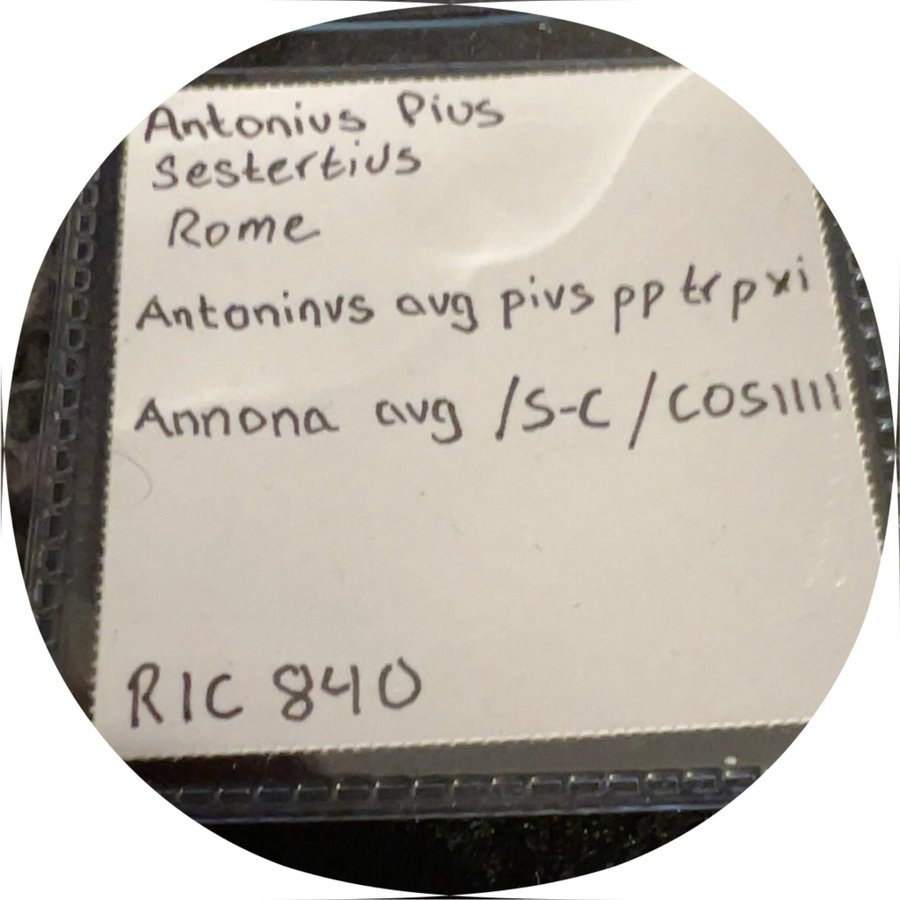 Antonius Pius
Sestertius
Rome
Antoninvs avg pivs pp tr p xi
Annona avg /S-C / COSIIII
RIC 840